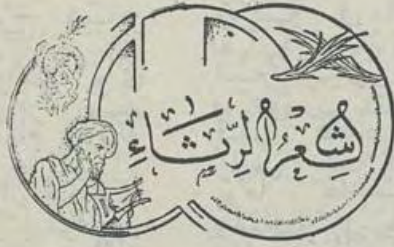 شِعْرُ الرِّثَاءِ